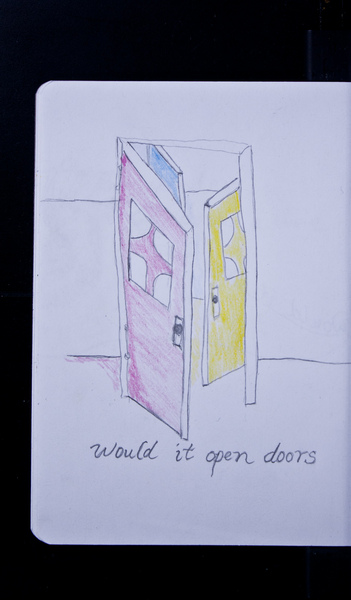 Would it open doors